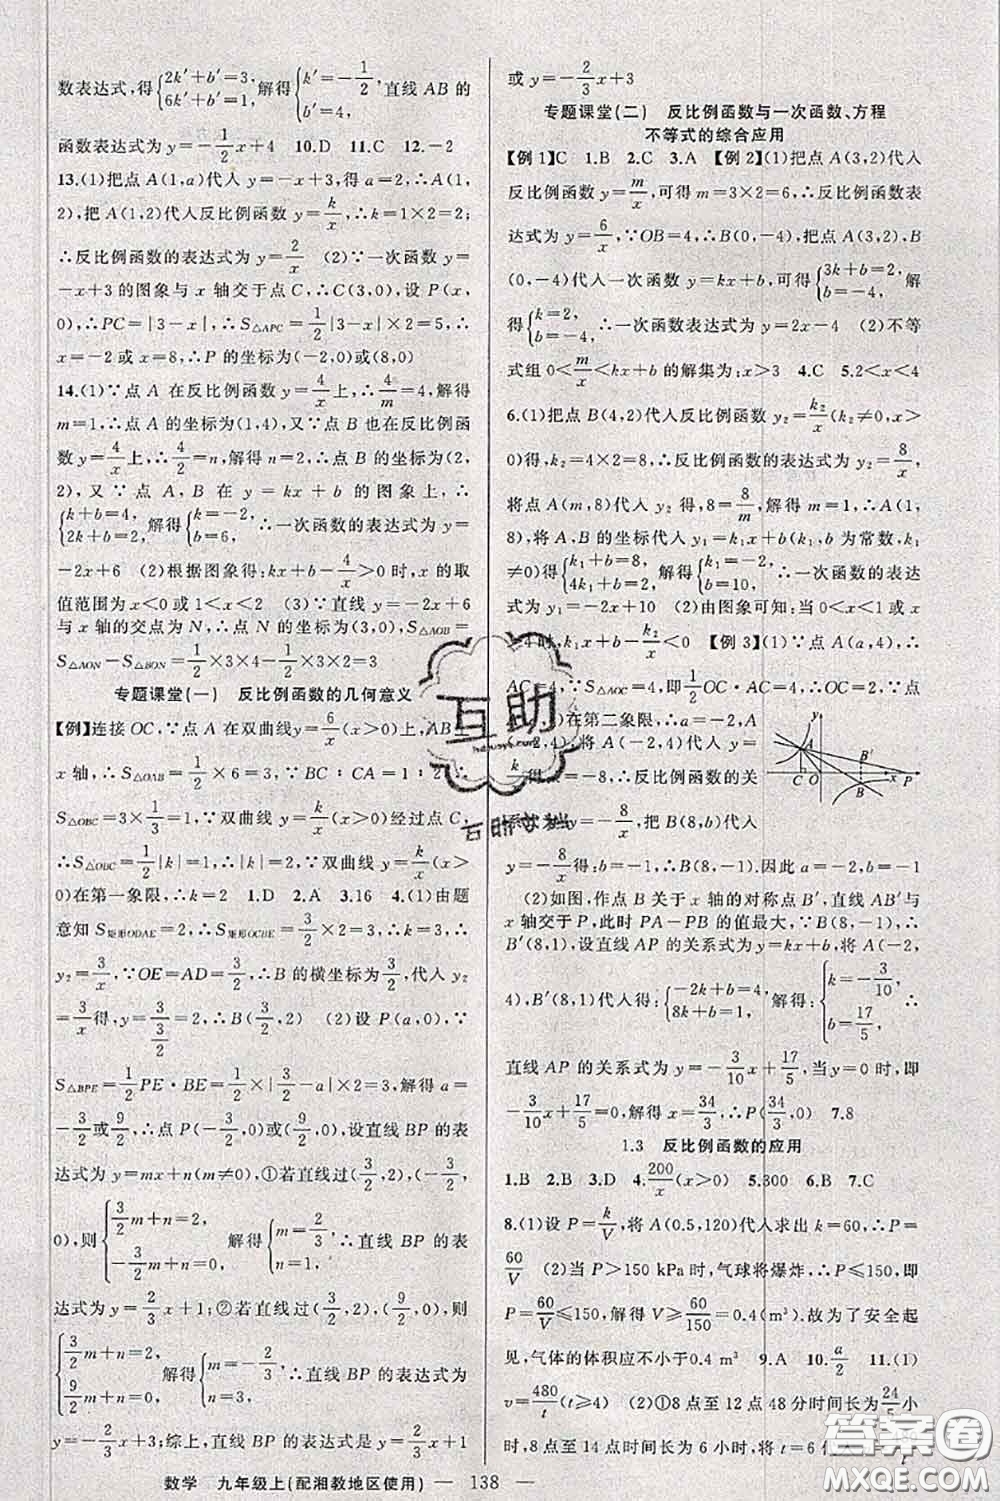 数表达式,得{2k′+b′=3, 6k′+b′=1, 解得{k′=-1/2, b′=4, 直线 AB 的
函数表达式为 y=-1/2x+4  10.D  11.C  12.-2
13.(1)把点 A(1,a)代入 y=-x+3,得 a=2,∴A(1,
2),把 A(1,2)代入反比例函数 y=k/x,∴k=1×2=2;
∴反比例函数的表达式为 y=2/x  (2)∵一次函数 y=
-x+3 的图象与 x 轴交于点 C,∴C(3,0),设 P(x,
0),∴PC=|3-x|,∴S△APC=1/2|3-x|×2=5,∴
x=-2 或 x=8,∴P 的坐标为(-2,0)或(8,0)
14.(1)∵点 A 在反比例函数 y=4/x上,∴4/m=4,解得
m=1,∴点 A 的坐标为(1,4),又∵点 B 也在反比例函
数 y=4/x上,∴4/2=n,解得 n=2,∴点 B 的坐标为(2,
2),又∵点 A,B 在 y=kx+b 的图象上,∴
{k+b=4, 2k+b=2, 解得{k=-2, b=6, ∴一次函数的表达式为 y=
-2x+6  (2)根据图象得:kx+b-4/x>0 时,x 的取
值范围为 x<0 或 1<x<2  (3)∵直线 y=-2x+6
与 x 轴的交点为 N,∴点 N 的坐标为(3,0),S△AOB=
S△AON-S△BON=1/2×3×4-1/2×3×2=3
专题课堂(一)  反比例函数的几何意义
【例】连接 OC,∵点 A 在双曲线y=6/x(x>0)上,AB⊥
x 轴,∴S△OAB=1/2×6=3,∵BC∶CA=1∶2,∴
S△OBC=3×1/3=1,∵双曲线 y=k/x经过点 C,
∴S△OBC=1/2|k|=1,∴|k|=2,∵双曲线 y=k/x(x>
0)在第一象限,∴k=2  1.D  2.A  3.16  4.(1)由题
意知 S矩形ODAE=1×3/2=3/2,∴S矩形OCBE=3/2+3/2=3,∴
y2=3/x,∵OE=AD=3/2,∴B 的横坐标为3/2,代入 y2
=3/x得,y=3/(3/2)=2,∴B(3/2,2)  (2)设 P(a,0),∵
S△BPE=1/2PE·BE=1/2×|3/2-a|×2=3,解得 a=
-3/2或9/2,∴点 P(-3/2,0)或(9/2,0),设直线 BP 的表
达式为 y=mx+n(m≠0),①若直线过(3/2,2),(-3/2,
0),则{3/2m+n=2, -3/2m+n=0, 解得{m=2/3, n=1, ∴直线 BP 的表
达式为 y=2/3x+1;②若直线过(3/2,2),(9/2,0),则
{3/2m+n=2, 9/2m+n=0, 解得{m=-2/3, n=3, ∴直线 BP 的表达式
y=-2/3x+3;综上,直线 BP 的表达式是 y=2/3x+1
或 y=-2/3x+3
专题课堂(二)  反比例函数与一次函数、方程
不等式的综合应用
【例 1】C  1.B  2.C  3.A  【例 2】(1)把点 A(3,2)代入
反比例函数 y=m/x,可得 m=3×2=6,∴反比例函数表
达式为 y=6/x,∵OB=4,∴B(0,-4),把点 A(3,2),B
(0,-4)代入一次函数 y=kx+b,可得{3k+b=2, b=-4, 解
得{k=2, b=-4, ∴一次函数表达式为 y=2x-4  (2)不等
式组 0<m/x<kx+b 的解集为:x>3  4.C  5.2<x<4
6.(1)把点 B(4,2)代入反比例函数 y2=k2/x(k2≠0,x>
0)得,k2=4×2=8,∴反比例函数的表达式为 y2=8/x,
将点 A(m,8)代入 y2 得,8=8/m,解得 m=1,∴A(1,
8),将 A,B 的坐标代入 y1=k1x+b(k1,b 为常数,k1
≠0)得{k1+b=8, 4k1+b=2, 解得{k1=-2, b=10, ∴一次函数的表达
式为 y1=-2x+10  (2)由图象可知:当 0<x<1 或 x
>4 时,k1x+b-k2/x<0  【例 3】(1)∵点 A(a,4),∴
AC=4,∵S△AOC=4,即1/2OC·AC=4,∴OC=2,∵点
A(a,4)在第二象限,∴a=-2,A
(-2,4),将 A(-2,4)代入 y=
k/x得:k=-8,∴反比例函数的关
系式为:y=-8/x,把 B(8,b)代入
y=-8/x得:b=-1,∴B(8,-1).因此 a=-2,b=-1
(2)如图,作点 B 关于 x 轴的对称点 B′,直线 AB′与
x 轴交于 P,此时 PA-PB 的值最大,∵B(8,-1),∴
B′(8,1),设直线 AP 的关系式为 y=kx+b,将 A(-2,
4),B′(8,1)代入得:{-2k+b=4, 8k+b=1, 解得:{k=-3/10, b=17/5, ∴
直线 AP 的关系式为 y=-3/10x+17/5,当 y=0 时,即
-3/10x+17/5=0,解得 x=34/3,∴P(34/3,0)  7.8
1.3  反比例函数的应用
1.B  2.B  3.D  4.200/x(x>0)  5.300  6.B  7.C
8.(1)设 P=k/V,将 A(0.5,120)代入求出 k=60,∴P=
60/V  (2)当 P>150 kPa 时,气球将爆炸,∴P≤150,即
P=60/V≤150,解得 V≥60/150=0.4(m³).故为了安全起
见,气体的体积应不小于0.4 m³  9.A  10.a/2  11.(1)
v=480/t(t≥4)  (2)①8 点至 12 点 48 分时间长为24/5小
时,8 点至 14 点时间长为 6 小时,将 t=6 代入 v=480/t
数学  九年级上(配湘教地区使用)  — 138 —
A B′ C O x P B
互助
答案圈
MXQE.COM